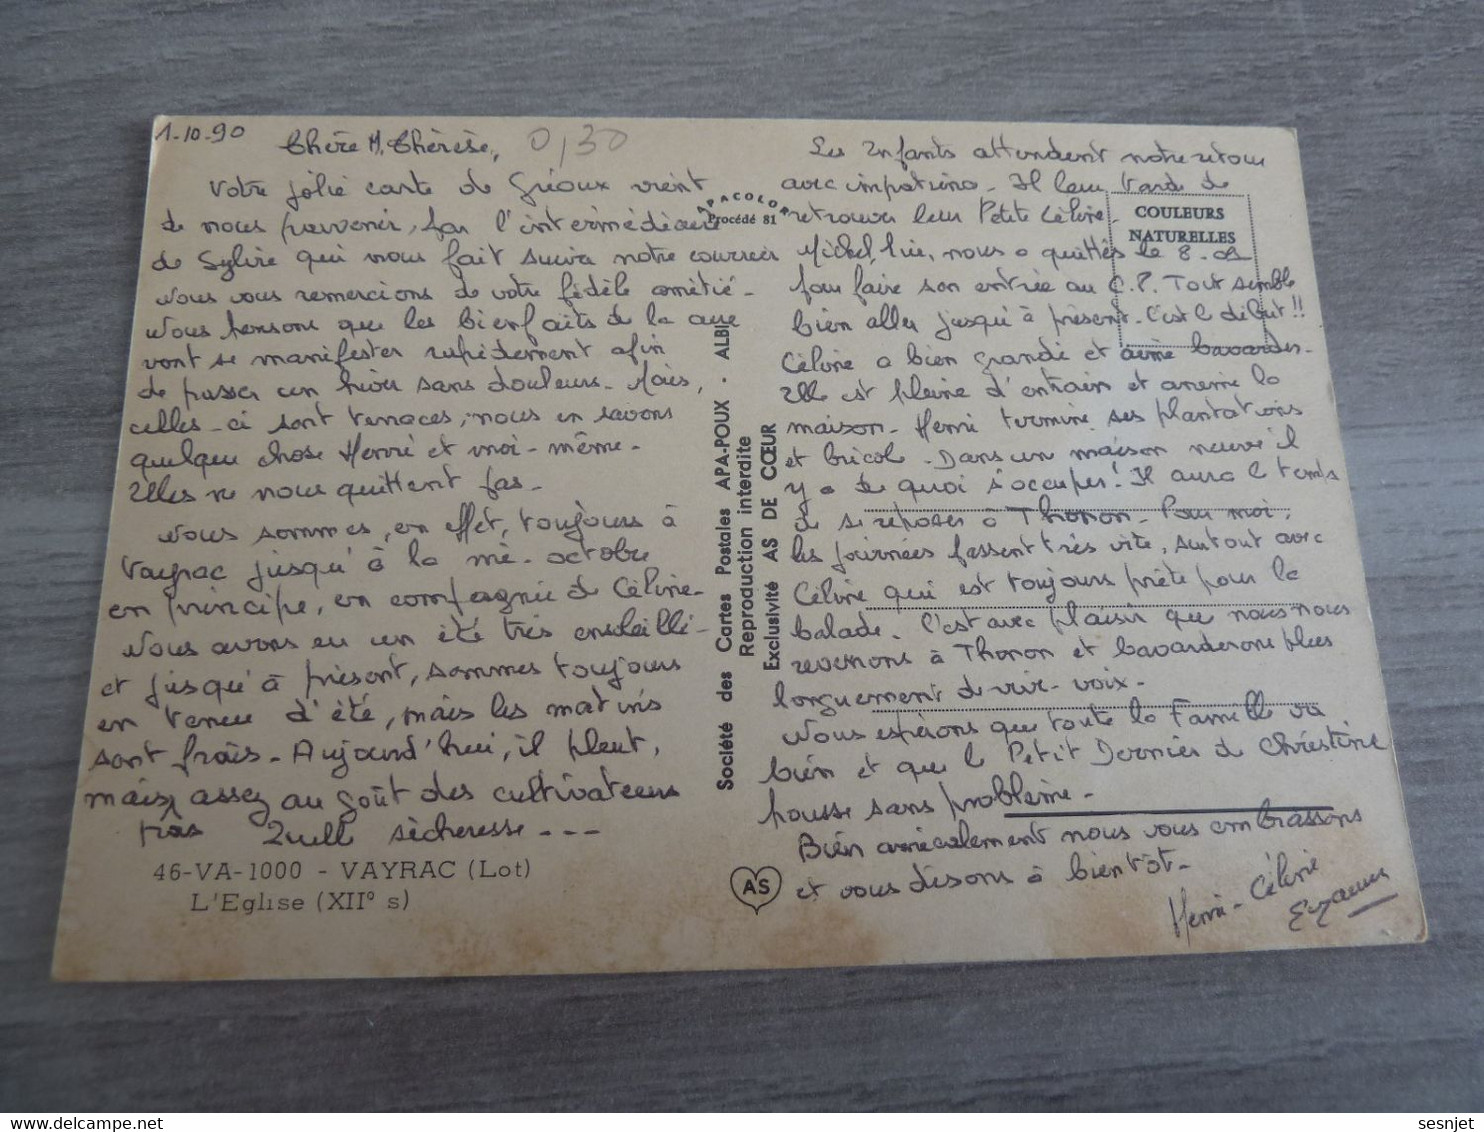 1-10-90
Chère M. Thérèse,
0,30
Votre jolie carte de Gréoux vient
de nous parvenir, par l'intermédiaire
de Sylvie qui nous fait suivre notre courrier
Nous vous remercions de votre fidèle amitié -
Nous pensons que les bienfaits de la cure
vont se manifester rapidement afin
de passer un hiver sans douleurs - Mais,
celles-ci sont tenaces, nous en savons
quelque chose Henri et moi-même -
Elles ne nous quittent pas -
Nous sommes, en effet, toujours à
Vayrac jusqu'à la mi-octobre
en principe, en compagnie de Céline -
Nous avons eu un été très ensoleillé -
et jusqu'à présent, sommes toujours
en tenue d'été, mais les matins
sont frais - Aujourd'hui, il pleut,
mais, pas assez au goût des cultivateurs
Quelle sècheresse ---
46-VA-1000 - VAYRAC (Lot)
L'Eglise (XII° s)
APACOLOR
Procédé 81
Société des Cartes Postales APA-POUX - ALBI
Reproduction interdite
Exclusivité AS DE CŒUR
AS
COULEURS
NATURELLES
Les Enfants attendent notre retour
avec impatience - Il leur tarde de
retrouver leur Petite Céline -
Michel, lui, nous a quittés le 8-9
pour faire son entrée au C.P. Tout semble
bien aller jusqu'à présent - C'est le début !!
Céline a bien grandi et aime bavarder -
Elle est pleine d'entrain et anime la
maison - Henri termine ses plantations
et bricole - Dans un maison neuve il
y a de quoi s'occuper ! Il aura le temps
de se reposer à Thonon - Pour moi,
les journées passent très vite, surtout avec
Céline qui est toujours prête pour la
balade. C'est avec plaisir que nous nous
reverrons à Thonon et bavarderons plus
longuement de vive-voix -
Nous espérons que toute la Famille va
bien et que le Petit Dernier de Christine
pousse sans problème -
Bien amicalement nous vous embrassons
et vous disons à bientôt -
Henri - Céline